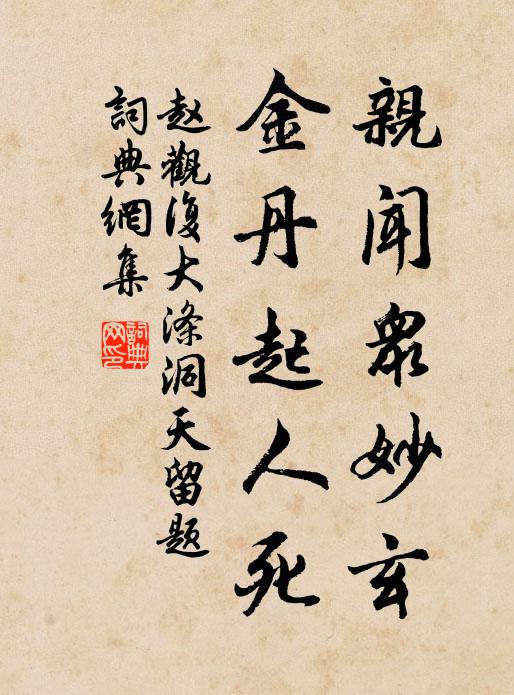 親聞眾妙玄
金丹起人死
赵觀復大滌洞天留题
詞典網集
詞典網印